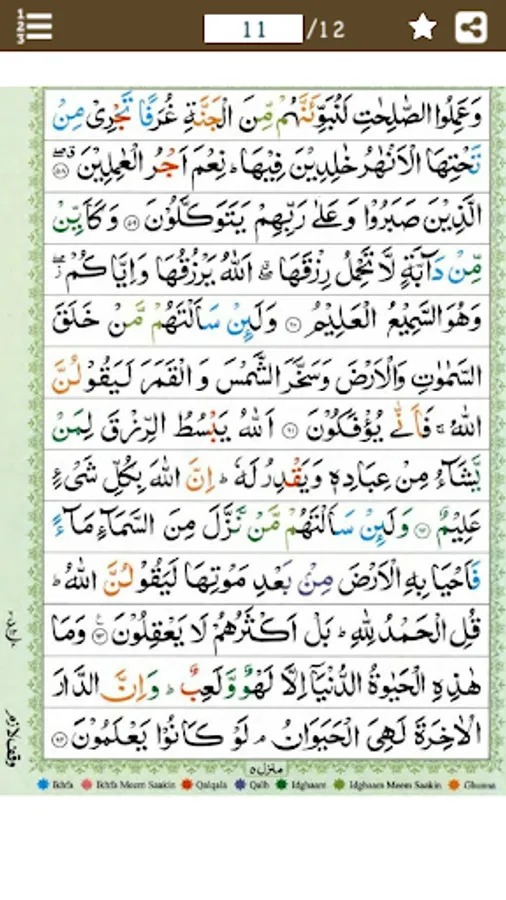 1 2 3
11 /12
وَعَمِلُوا الصّٰلِحٰتِ لَنُبَوِّئَنَّهُمْ مِّنَ الْجَنَّةِ غُرَفًا تَجْرِيْ مِنْ
تَحْتِهَا الْاَنْهٰرُ خٰلِدِيْنَ فِيْهَا ؕ نِعْمَ اَجْرُ الْعٰمِلِيْنَ ۝۵۸ ۖق
الَّذِيْنَ صَبَرُوْا وَعَلٰى رَبِّهِمْ يَتَوَكَّلُوْنَ ۝۵۹ وَكَاَيِّنْ
مِّنْ دَآبَّةٍ لَّا تَحْمِلُ رِزْقَهَا ۖق اَللّٰهُ يَرْزُقُهَا وَاِيَّاكُمْ ۖز
وَهُوَ السَّمِيْعُ الْعَلِيْمُ ۝۶۰ وَلَىِٕنْ سَاَلْتَهُمْ مَّنْ خَلَقَ
السَّمٰوٰتِ وَالْاَرْضَ وَسَخَّرَ الشَّمْسَ وَ الْقَمَرَ لَيَقُوْلُنَّ
اللّٰهُ ۚ فَاَنّٰى يُؤْفَكُوْنَ ۝۶۱ اَللّٰهُ يَبْسُطُ الرِّزْقَ لِمَنْ
يَّشَآءُ مِنْ عِبَادِهٖ وَيَقْدِرُ لَهٗ ؕ اِنَّ اللّٰهَ بِكُلِّ شَيْءٍ
عَلِيْمٌ ۝۶۲ وَلَىِٕنْ سَاَلْتَهُمْ مَّنْ نَّزَّلَ مِنَ السَّمَآءِ مَآءً
فَاَحْيَا بِهِ الْاَرْضَ مِنْۢ بَعْدِ مَوْتِهَا لَيَقُوْلُنَّ اللّٰهُ ؕ
قُلِ الْحَمْدُ لِلّٰهِ ؕ بَلْ اَكْثَرُهُمْ لَا يَعْقِلُوْنَ ۝۶۳ وَمَا
هٰذِهِ الْحَيٰوةُ الدُّنْيَآ اِلَّا لَهْوٌ وَّلَعِبٌ ؕ وَاِنَّ الدَّارَ
الْاٰخِرَةَ لَهِيَ الْحَيَوَانُ ۘ لَوْ كَانُوْا يَعْلَمُوْنَ ۝۶۴
وقف لازم
منزل ۵
Ikhfa Ikhfa Meem Saakin Qalqala Qalb Idghaam Idghaam Meem Saakin Ghunna